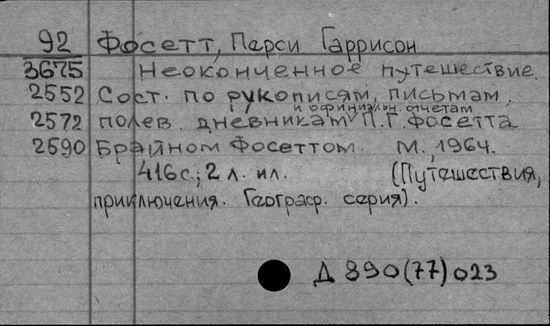 92 Фосетт, Перси Гаррисон
3675 Неоконченное путешествие.
2552 Сост. по рукописям, письмам,
и официальн. отчетам
2572 полев. дневникам П.Г. Фосетта
2590 Брайном Фосеттом. М., 1964.
416 с.; 2 л. ил. (Путешествия,
приключения. Географ. серия).
Д 890(77)023